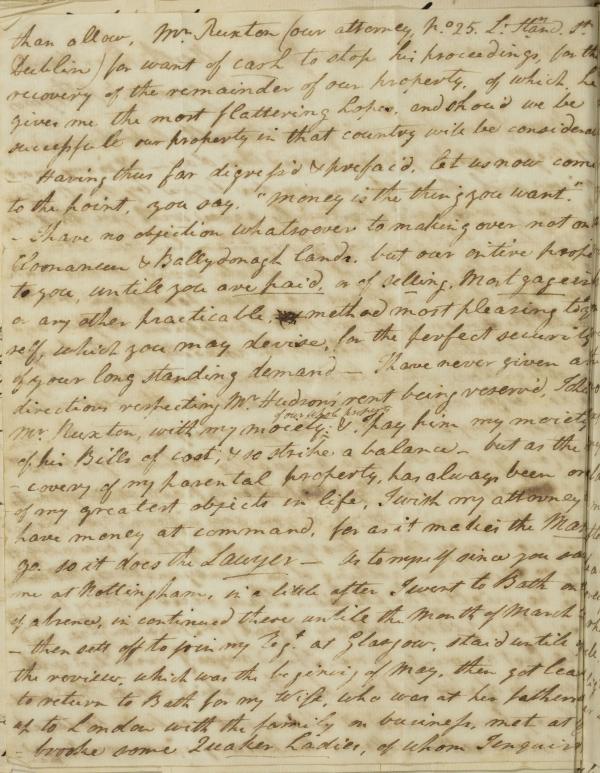 than allow, Mr. Ruxton (our attorney, No. 25. Lr. St.
Dublin) for want of cash to stop his proceedings, for the
recovery of the remainder of our property, of which he
gives me the most flattering hopes, and shou'd we be
successfull our property in that country will be considera
Having thus far digress'd & prefaid, let us now come
to the point, you say. "money is the thing you want."
- I have no objection whatsoover to making over not on
Cloonaneen & Ballydonagh lands. but our entire prop
to you, untill you are paid, or of selling, Mortgageing
or any other practicable method most pleasing to yr
self, which you may devise, for the perfect security
of your long standing demand — I have never given a
directions respecting Mr. Hudson's rent being reserv'd, I al
Mr. Ruxton, with my moiety, & I pay him my moiety
of his Bills of cost, & so strike a balance — but as the
- covery of my parental property, has always been on
of my greatest objects in life, I wish my attorney
have money at command, for as it makes the Mar
go so it does the Lawyer — As to myself since you saw
me at Nottingham, in a little after I went to Bath on
of absence, in continued there untile the month of March
- then sett off to join my Regt. at Glasgow, staid untile
the review, which was the begining of May, then got leav
to return to Bath for my Wife, who was at her fathers
up to London with the family on buciness, met at
- brooke some Quaker Ladies, of whom I enquir